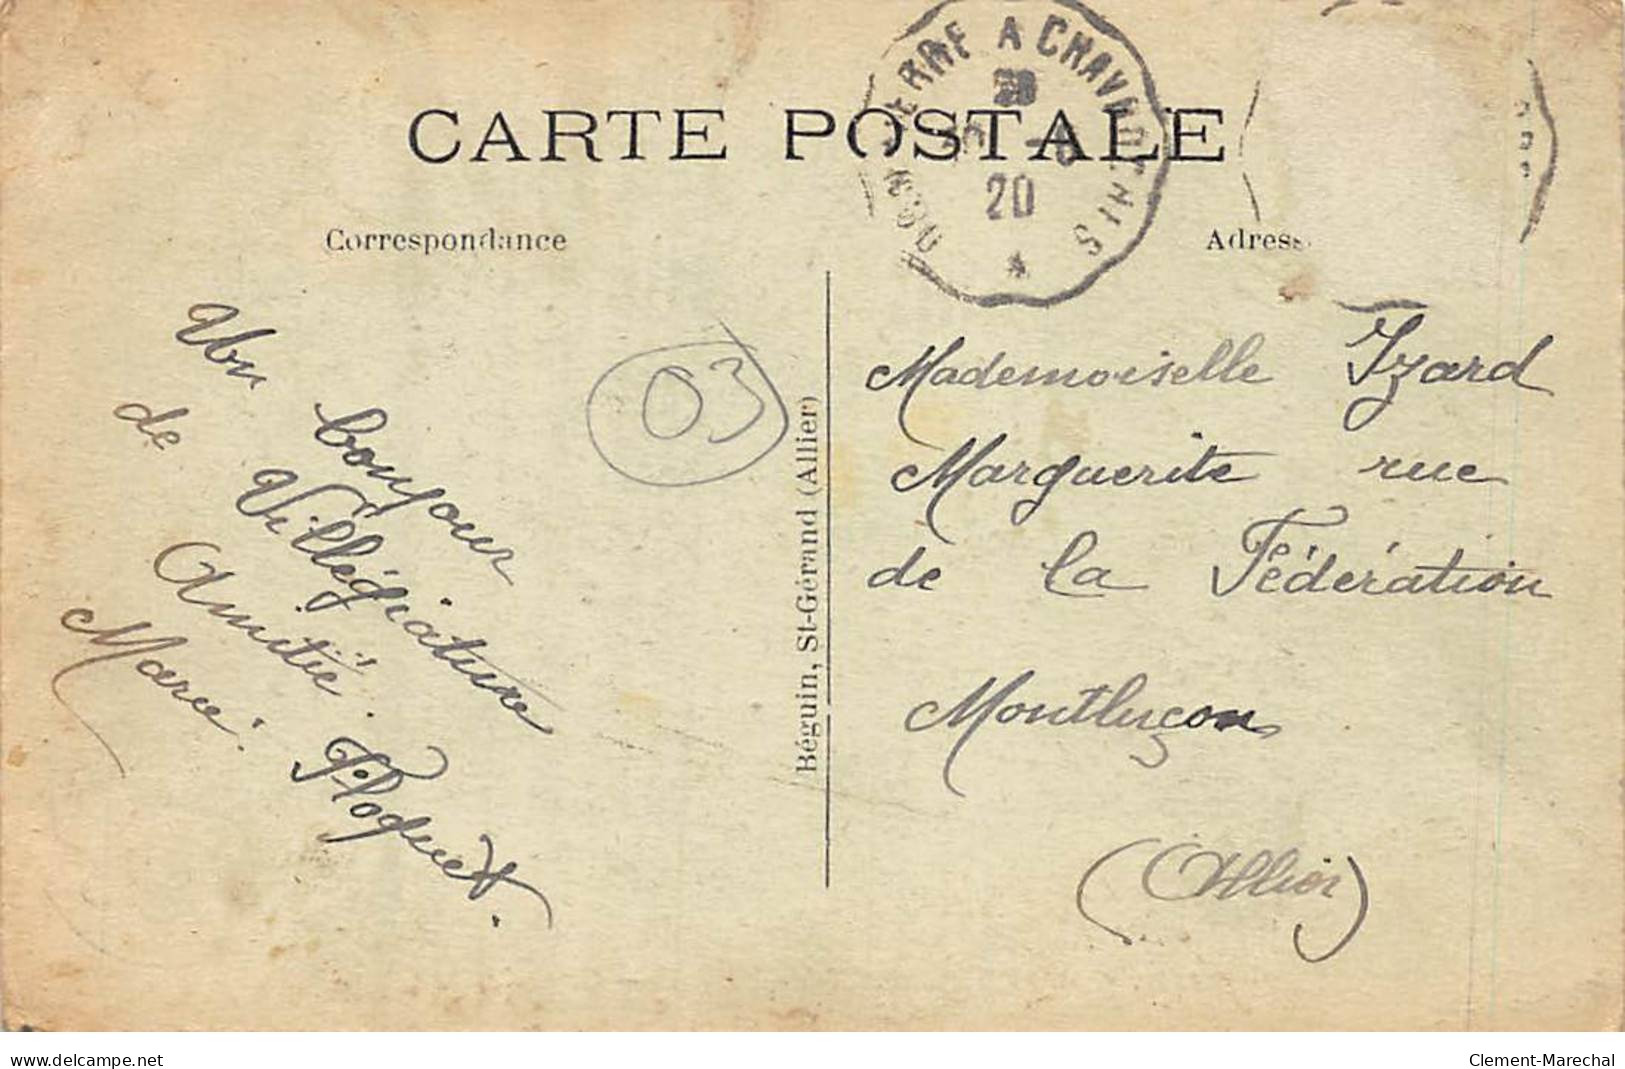 CARTE POSTALE
A CHAV
20
Correspondance
Adress
Un bonjour
de Villégiature
Amitié.
Marie Floquet.
03
Béguin, St-Gérand (Allier)
Mademoiselle Izard
Marguerite rue
de la Fédération
Montluçon
(Allier)
www.delcampe.net
Clement-Marechal